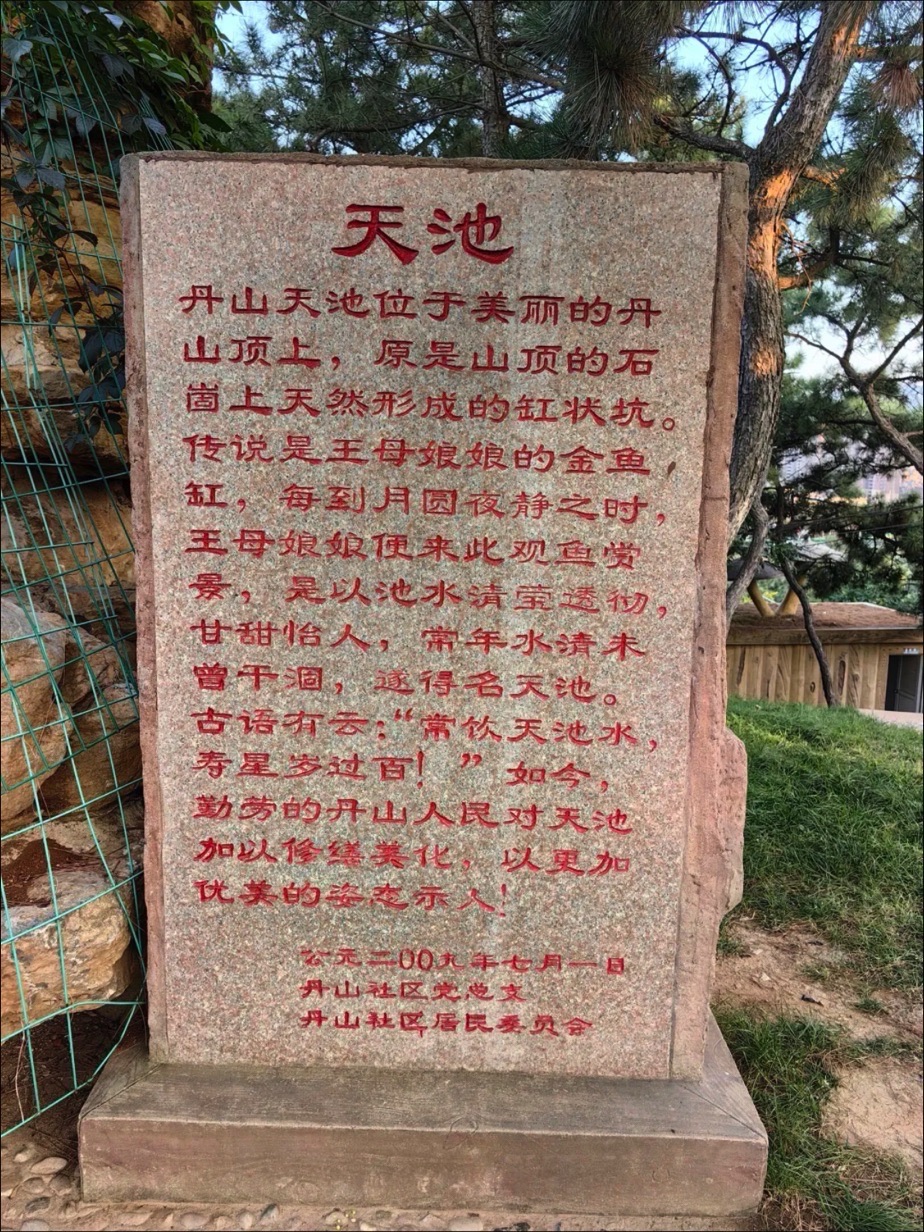 天池
丹山天池位于美丽的丹
山顶上，原是山顶的石
崮上天然形成的缸状坑。
传说是王母娘娘的金鱼
缸，每到月圆夜静之时，
王母娘娘便来此观鱼赏
景，是以池水清莹透彻，
甘甜怡人，常年水清未
曾干涸，遂得名天池。
古语有云：“常饮天池水，
寿星岁过百！”如今，
勤劳的丹山人民对天池
加以修缮美化，以更加
优美的姿态示人！
公元二00九年七月一日
丹山社区党总支
丹山社区居民委员会